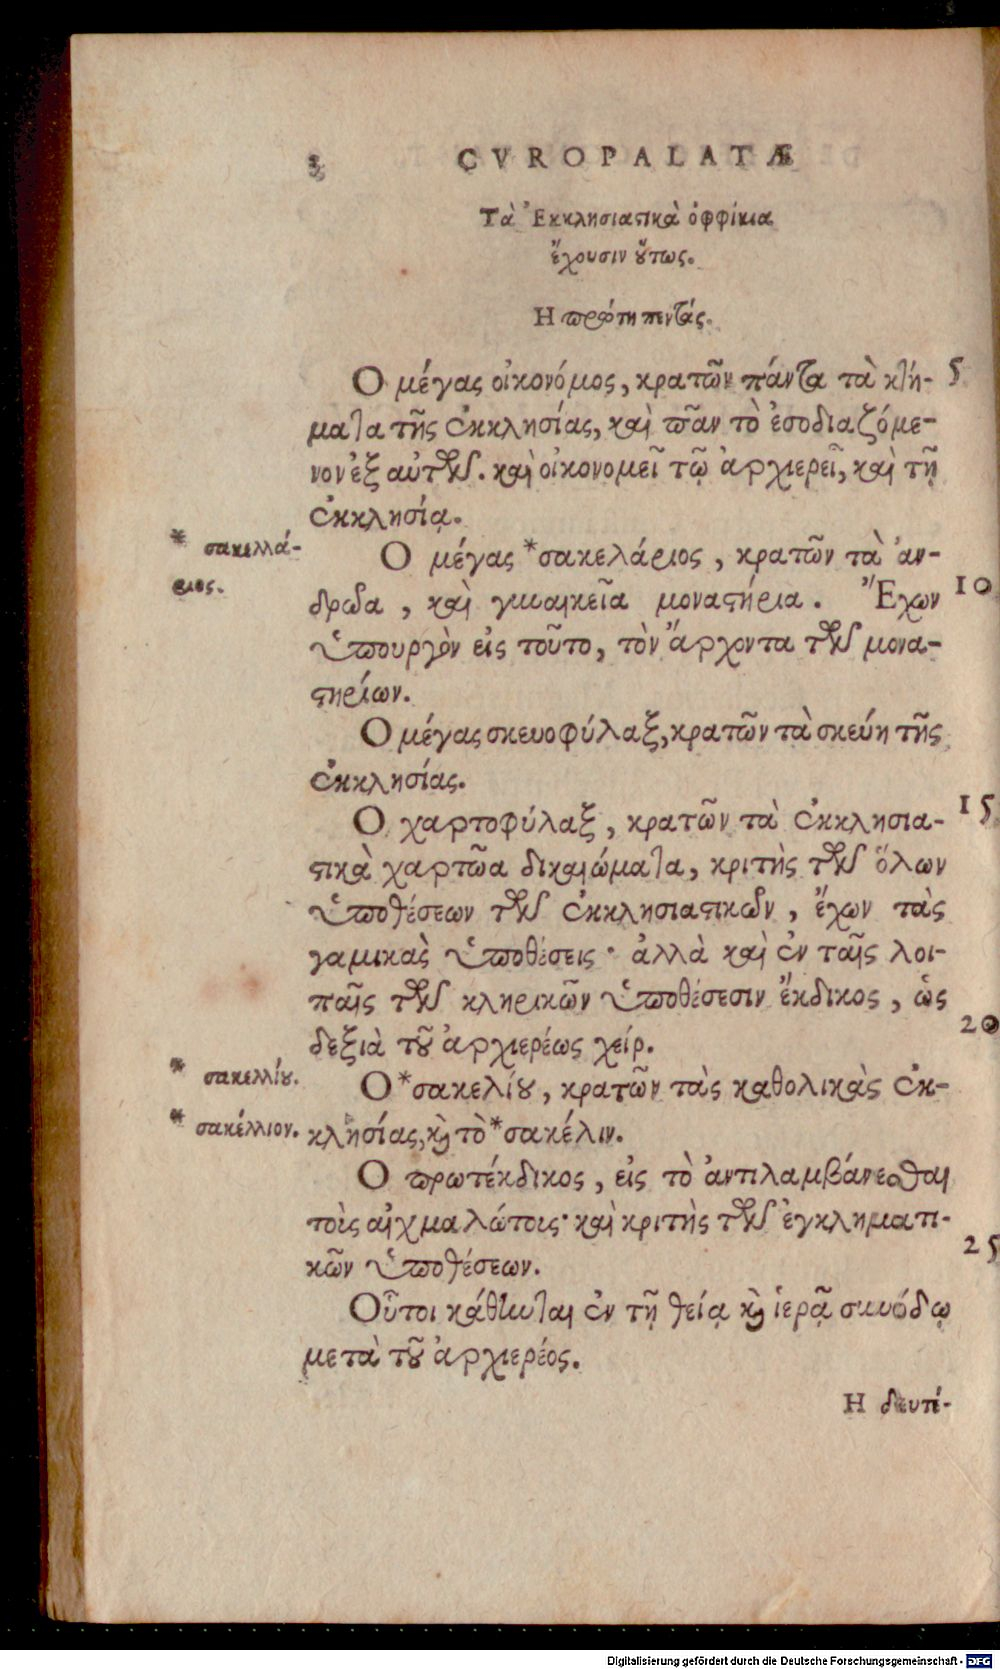 CVROPALATÆ
Τὰ Ἐκκλησιαστικὰ ὀφφίκια
ἔχουσιν οὕτως.
Η πρώτη πεντάς.
Ο μέγας οἰκονόμος, κρατῶν πάντα τὰ κτή- 5
ματα τῆς ἐκκλησίας, καὶ πᾶν τὸ ἐσοδιαζόμε-
νον ἐξ αὐτῶν. καὶ οἰκονομεῖ τῷ ἀρχιερεῖ, καὶ τῇ
ἐκκλησίᾳ.
* σακελλά-
ριος.
Ο μέγας *σακελάριος, κρατῶν τὰ ἀν-
δρῶα, καὶ γυναικεῖα μοναστήρια. Ἔχων 10
ὑπουργὸν εἰς τοῦτο, τὸν ἄρχοντα τῶν μονα-
στηρίων.
Ο μέγας σκευοφύλαξ, κρατῶν τὰ σκεύη τῆς
ἐκκλησίας.
Ο χαρτοφύλαξ, κρατῶν τὰ ἐκκλησια- 15
στικὰ χαρτῶα δικαιώματα, κριτὴς τῶν ὅλων
ὑποθέσεων τῶν ἐκκλησιαστικῶν, ἔχων τὰς
γαμικὰς ὑποθέσεις· ἀλλὰ καὶ ἐν ταῖς λοι-
παῖς τῶν κληρικῶν ὑποθέσεσιν ἔκδικος, ὡς
δεξιὰ τοῦ ἀρχιερέως χείρ. 20
* σακελλίου.
Ο *σακελίου, κρατῶν τὰς καθολικὰς ἐκ-
* σακέλλιον.
κλησίας, καὶ τὸ *σακέλιν.
Ο πρωτέκδικος, εἰς τὸ ἀντιλαμβάνεσθαι
τοῖς αἰχμαλώτοις· καὶ κριτὴς τῶν ἐγκληματι-
κῶν ὑποθέσεων. 25
Οὗτοι κάθηνται ἐν τῇ θείᾳ καὶ ἱερᾷ συνόδῳ
μετὰ τοῦ ἀρχιερέος.
Η δευτέ-
Digitalisierung gefördert durch die Deutsche Forschungsgemeinschaft - DFG